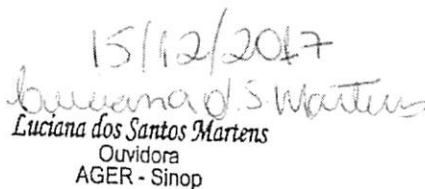 15/12/2017
Luciana d. S. Martens
Luciana dos Santos Martens
Ouvidora
AGER - Sinop